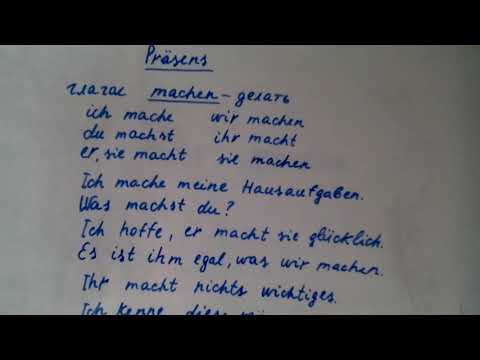 Präsens
глагол machen - делать
ich mache wir machen
du machst ihr macht
er, sie macht sie machen
Ich mache meine Hausaufgaben.
Was machst du?
Ich hoffe, er macht sie glücklich.
Es ist ihm egal, was wir machen.
Ihr macht nichts wichtiges.
Ich kenne diese